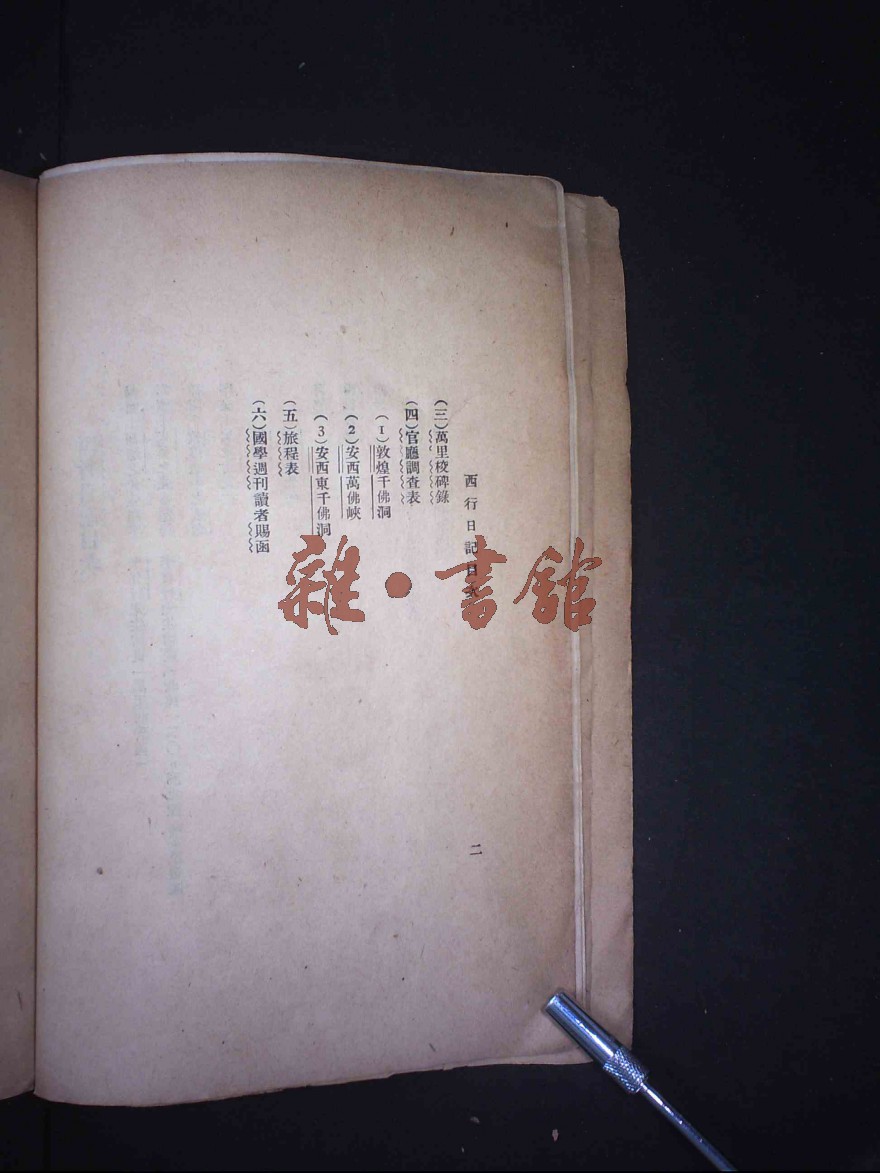 西行日記目次
二
(三)萬里校碑錄
(四)官廳調查表
(1)敦煌千佛洞
(2)安西萬佛峽
(3)安西東千佛洞
(五)旅程表
(六)國學週刊讀者賜函
雜·書館